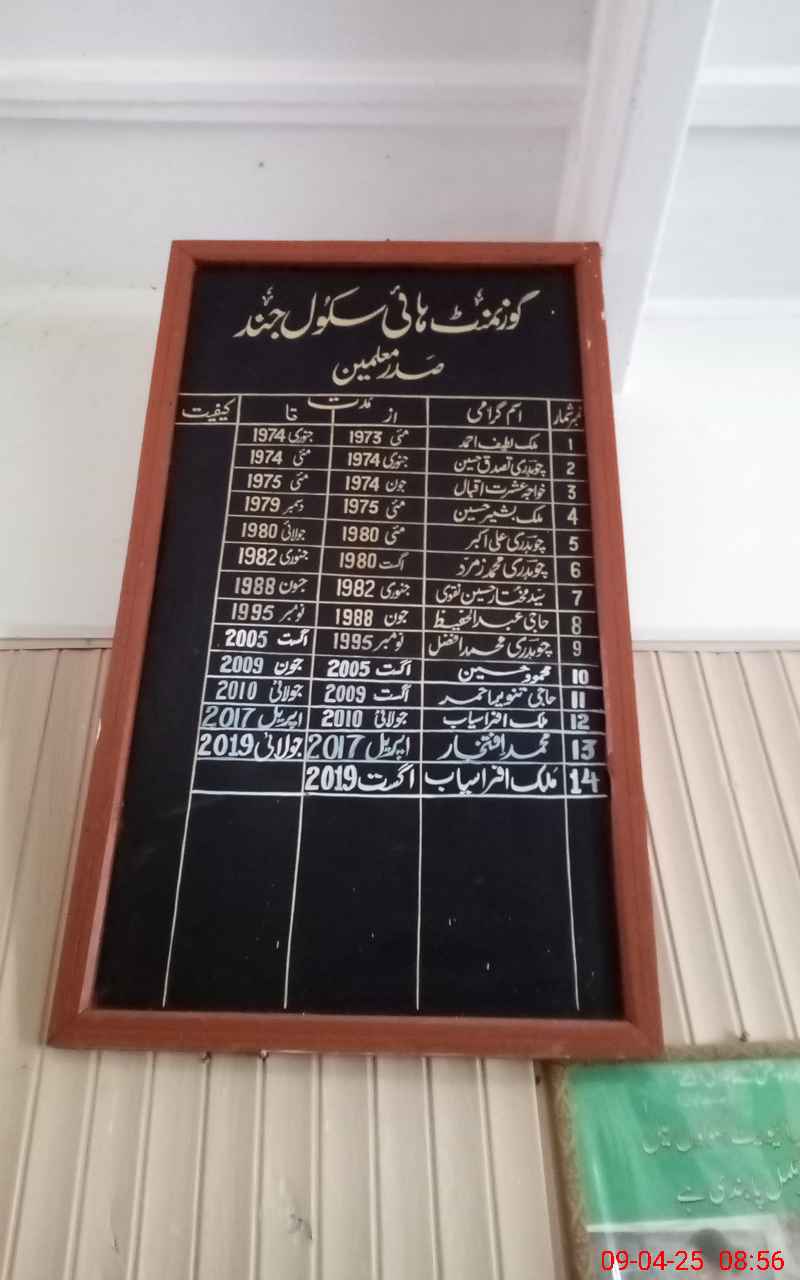 گورنمنٹ ہائی سکول جند
صدر معلمین
نمبر شمار اسم گرامی مدت از تا کیفیت
1 ملک لطیف احمد مئی 1973 جنوری 1974
2 چوہدری تصدق حسین جنوری 1974 مئی 1974
3 خواجہ عشرت اقبال جون 1974 مئی 1975
4 ملک بشیر حسین مئی 1975 دسمبر 1979
5 چوہدری علی اکبر مئی 1980 جولائی 1980
6 چوہدری محمد زمرد اگست 1980 جنوری 1982
7 سید مختار حسین نقوی جنوری 1982 جون 1988
8 حاجی عبدالحفیظ جون 1988 نومبر 1995
9 چوہدری محمد افضل نومبر 1995 اگست 2005
10 محمود حسین اگست 2005 جون 2009
11 حاجی تنویر احمد اگست 2009 جولائی 2010
12 ملک افراسیاب جولائی 2010 اپریل 2017
13 محمد افتخار اپریل 2017 جولائی 2019
14 ملک افراسیاب اگست 2019
مکمل پابندی ہے
09-04-25 08:56